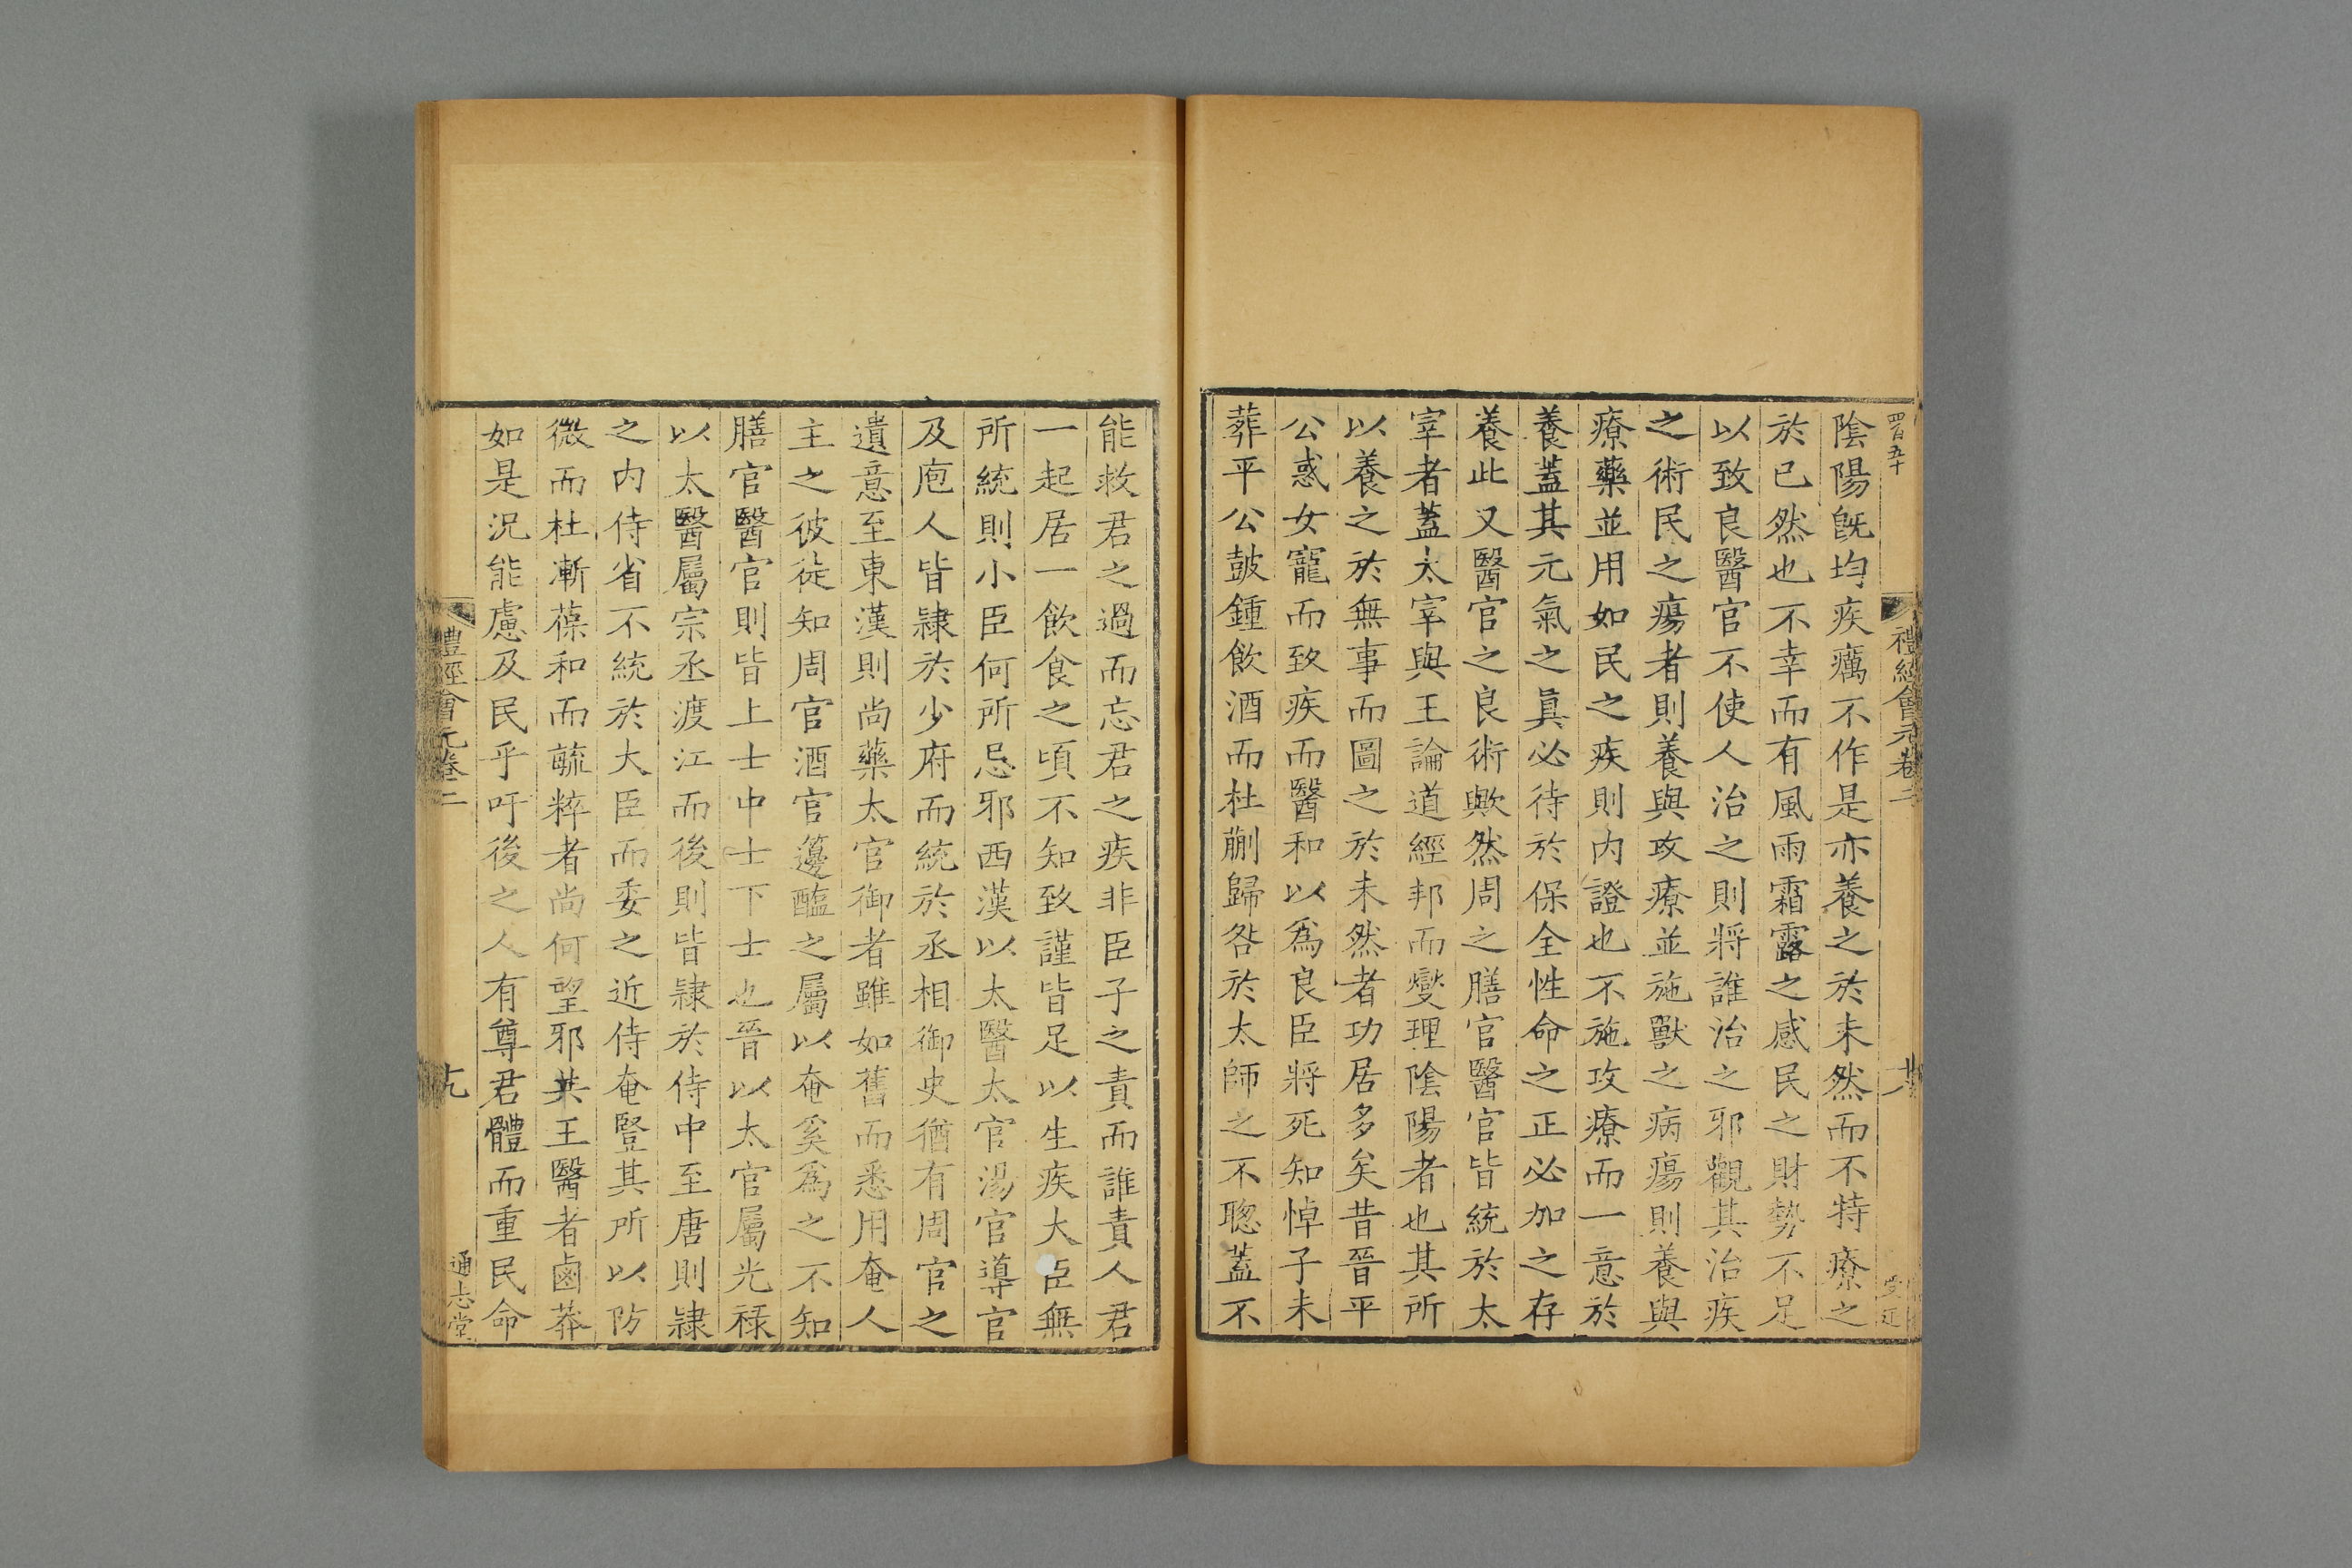 四百五十
禮經會元卷二
陰陽旣均疾癘不作是亦養之於未然而不特療之
於已然也不幸而有風雨霜露之感民之財勢不足
以致良醫官不使人治之則將誰治之邪觀其治疾
之術民之瘍者則養與攻療並施獸之病瘍則養與
療藥並用如民之疾則内證也不施攻療而一意於
養蓋其元氣之眞必待於保全性命之正必加之存
養此又醫官之良術歟然周之膳官醫官皆統於太
宰者蓋太宰與王論道經邦而燮理陰陽者也其所
以養之於無事而圖之於未然者功居多矣昔晉平
公惑女寵而致疾而醫和以爲良臣將死知悼子未
葬平公鼓鍾飲酒而杜蒯歸咎於太師之不聦蓋不
能救君之過而忘君之疾非臣子之責而誰責人君
一起居一飲食之頃不知致謹皆足以生疾大臣無
所統則小臣何所忌邪西漢以太醫太官湯官導官
及庖人皆隷於少府而統於丞相御史猶有周官之
遺意至東漢則尚藥太官御者雖如舊而悉用奄人
主之彼徒知周官酒官籩醢之屬以奄奚爲之不知
膳官醫官則皆上士中士下士也晉以太官屬光祿
以太醫屬宗丞渡江而後則皆隷於侍中至唐則隷
之内侍省不統於大臣而委之近侍奄豎其所以防
微而杜漸葆和而毓粹者尚何望邪其王醫者鹵莽
如是況能慮及民乎吁後之人有尊君體而重民命
禮經會元卷二
十九
通志堂